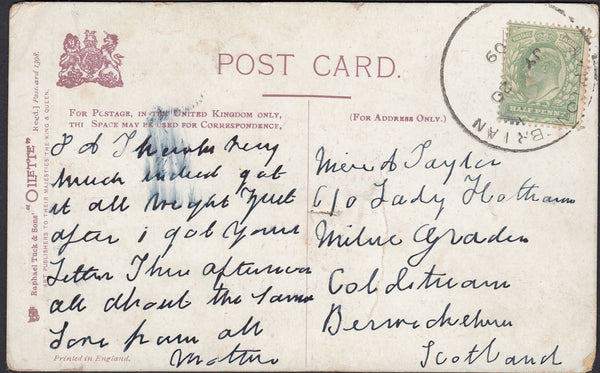 POST CARD.
FOR POSTAGE, IN THE UNITED KINGDOM ONLY,
THI SPACE MAY BE USED FOR CORRESPONDENCE.
(FOR ADDRESS ONLY.)
Raphael Tuck & Sons' "OILETTE" [Regd.] Postcard 1398.
ART PUBLISHERS TO THEIR MAJESTIES THE KING & QUEEN.
POSTAGE
HALFPENNY
BRIAN
JY
09
very
much indeed got
it all
after i got your
Letter afternoon
all about the same
Love from all
Mother
Printed in England.
A Taylor
C/o Lady Hotham
Milne Graden
Coldstream
Berwickshire
Scotland